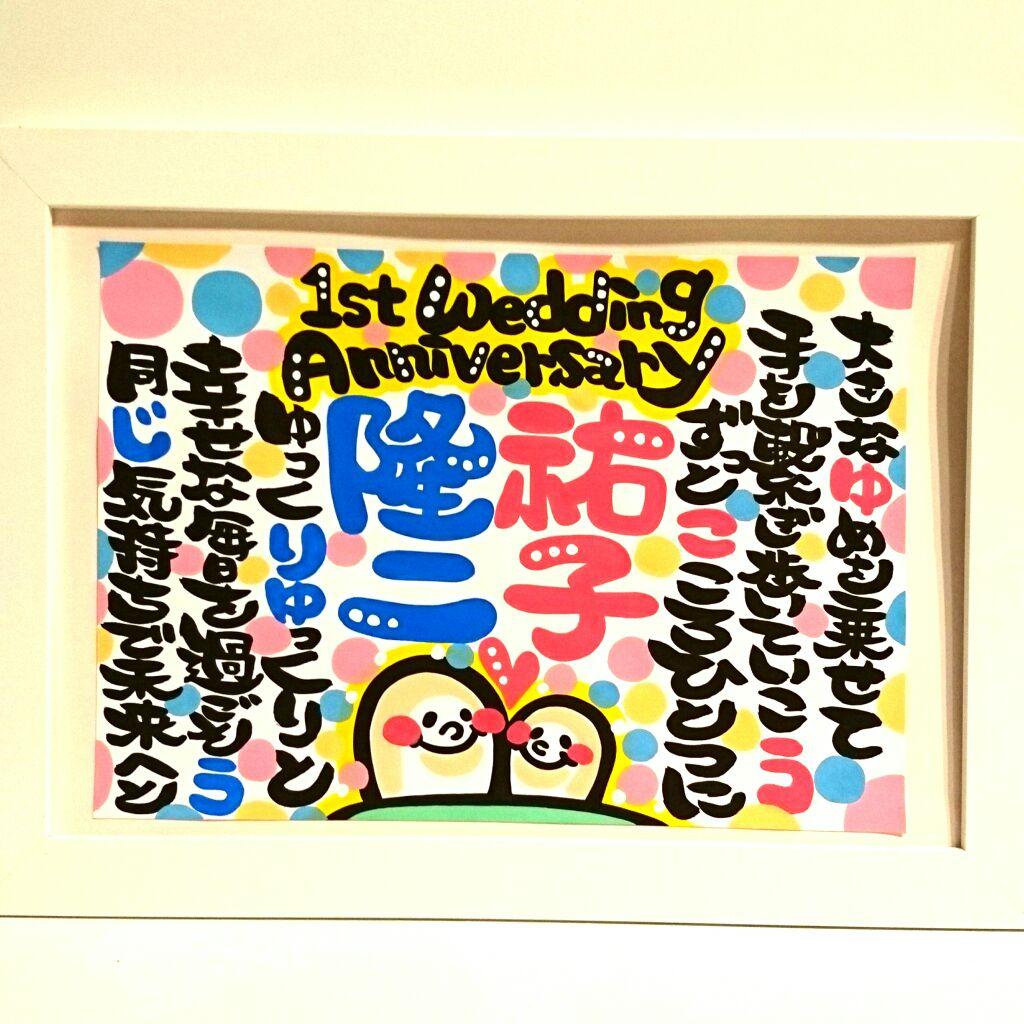 1st Wedding
Anniversary
大きなゆめを乗せて
手を繋ぎ歩いていこう
ずっとこころひとつに
祐子
隆二
ゆっくりゆっくりと
幸せな毎日を過ごそう
同じ気持ちで未来へと